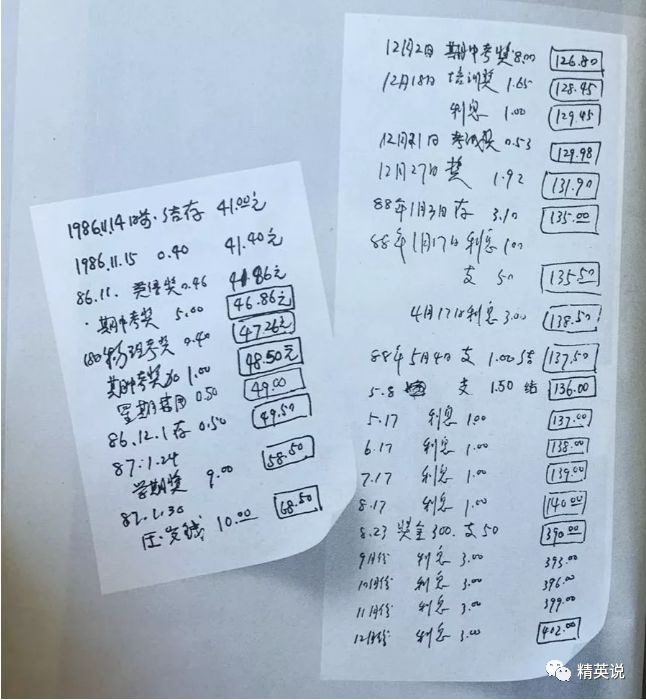 1986.11.14日前·结存 41.00元
1986.11.15 0.40 41.40元
86.11. 英语奖0.46 41.86元
·期中考奖 5.00 46.86元
物理考奖 0.40 47.26元
期中考奖加 1.00 48.50元
星期 0.50 49.00
86.12.1存 0.50 49.50
87.1.24
学期奖 9.00 58.50
87.1.30
压岁钱 10.00 68.50
12月2日 期中考奖8.00 126.80
12月18日 培训奖 1.65 128.45
利息 1.00 129.45
12月21日 考试奖 0.53 129.98
12月27日 奖 1.92 131.90
88年1月3日存 3.10 135.00
88年1月17日利息 1.00
支 50 135.50
4月17日利息 3.00 138.50
88年5月4日 支 1.00 结 137.50
5.8 支 1.50 结 136.00
5.17 利息 1.00 137.00
6.17 利息 1.00 138.00
7.17 利息 1.00 139.00
8.17 利息 1.00 140.00
8.23 奖金300.支50 390.00
9月份 利息 3.00 393.00
10月份 利息 3.00 396.00
11月份 利息 3.00 399.00
12月份 利息 3.00 402.00
精英说